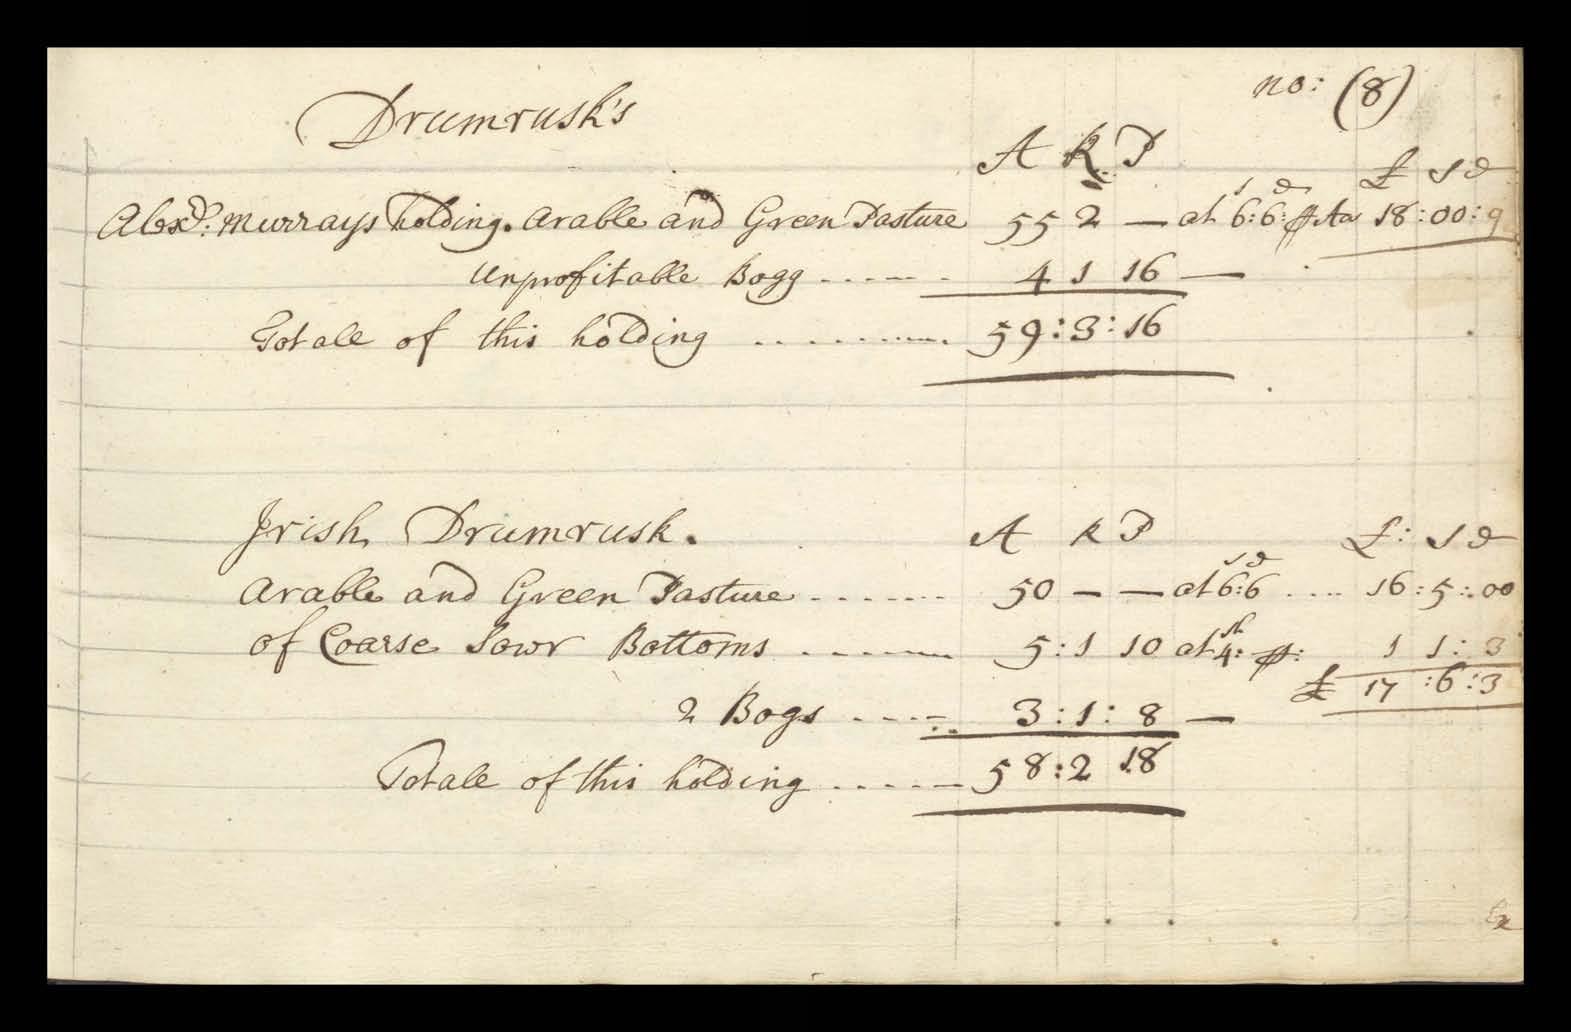 no: (8)
Drumrusk's
A R P £ s d
Alexd: Murrays holding. Arable and Green Pasture 55 2 — at 6s:6d: ⅌ Ac 18:00:9
Unprofitable Bogg ...... 4 1 16 —
Totale of this holding ......... 59:3:16
Irish Drumrusk.
A R P £: s d
Arable and Green Pasture ....... 50 — — at 6s:6d .... 16:5:00
of Coarse Sowr Bottoms ....... 5:1 10 at 4sh: ⅌: 1 1:3
£ 17:6:3
2 Bogs ..... 3:1:8 —
Totale of this holding ...... 58:2 18